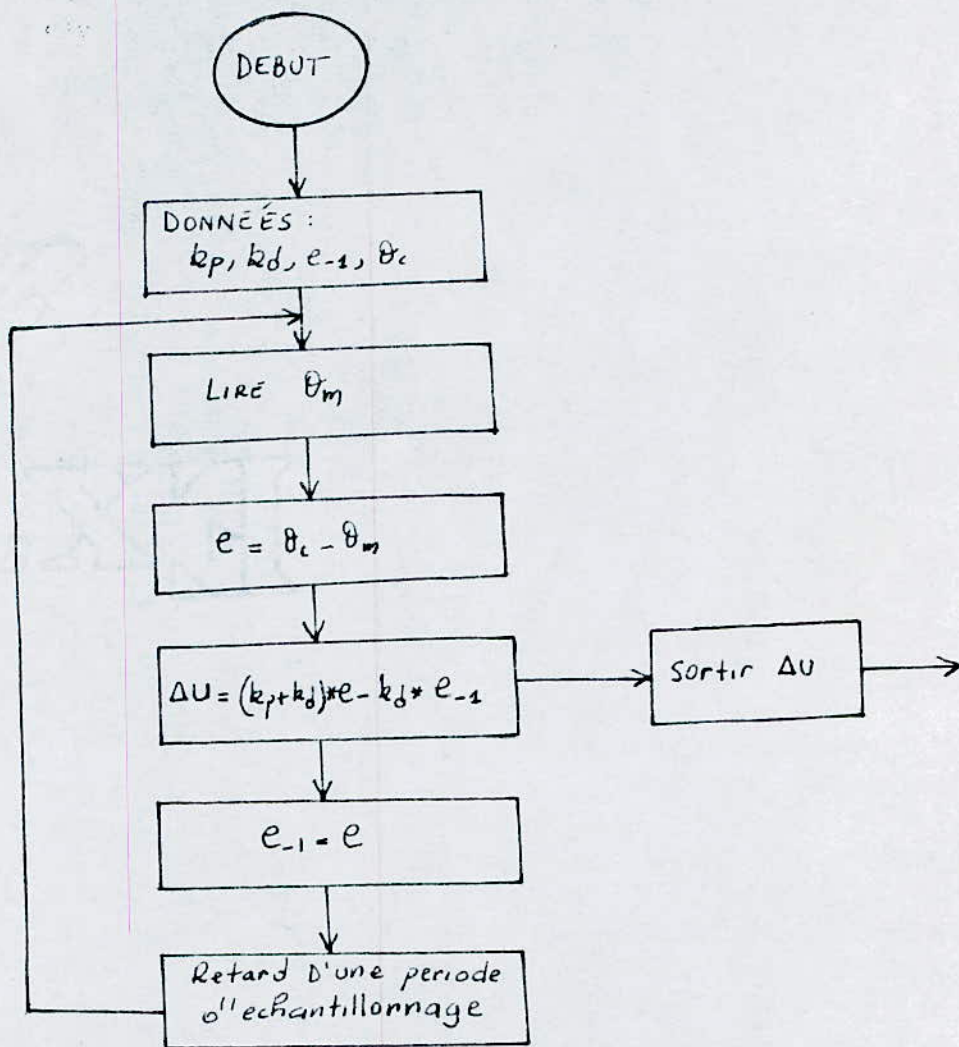 DEBUT
DONNÉÉS :
kp, kd, e-1, θc
LIRE θm
e = θc - θm
ΔU = (kp+kd)*e - kd * e-1
Sortir ΔU
e-1 = e
Retard D'une periode
d'echantillonnage